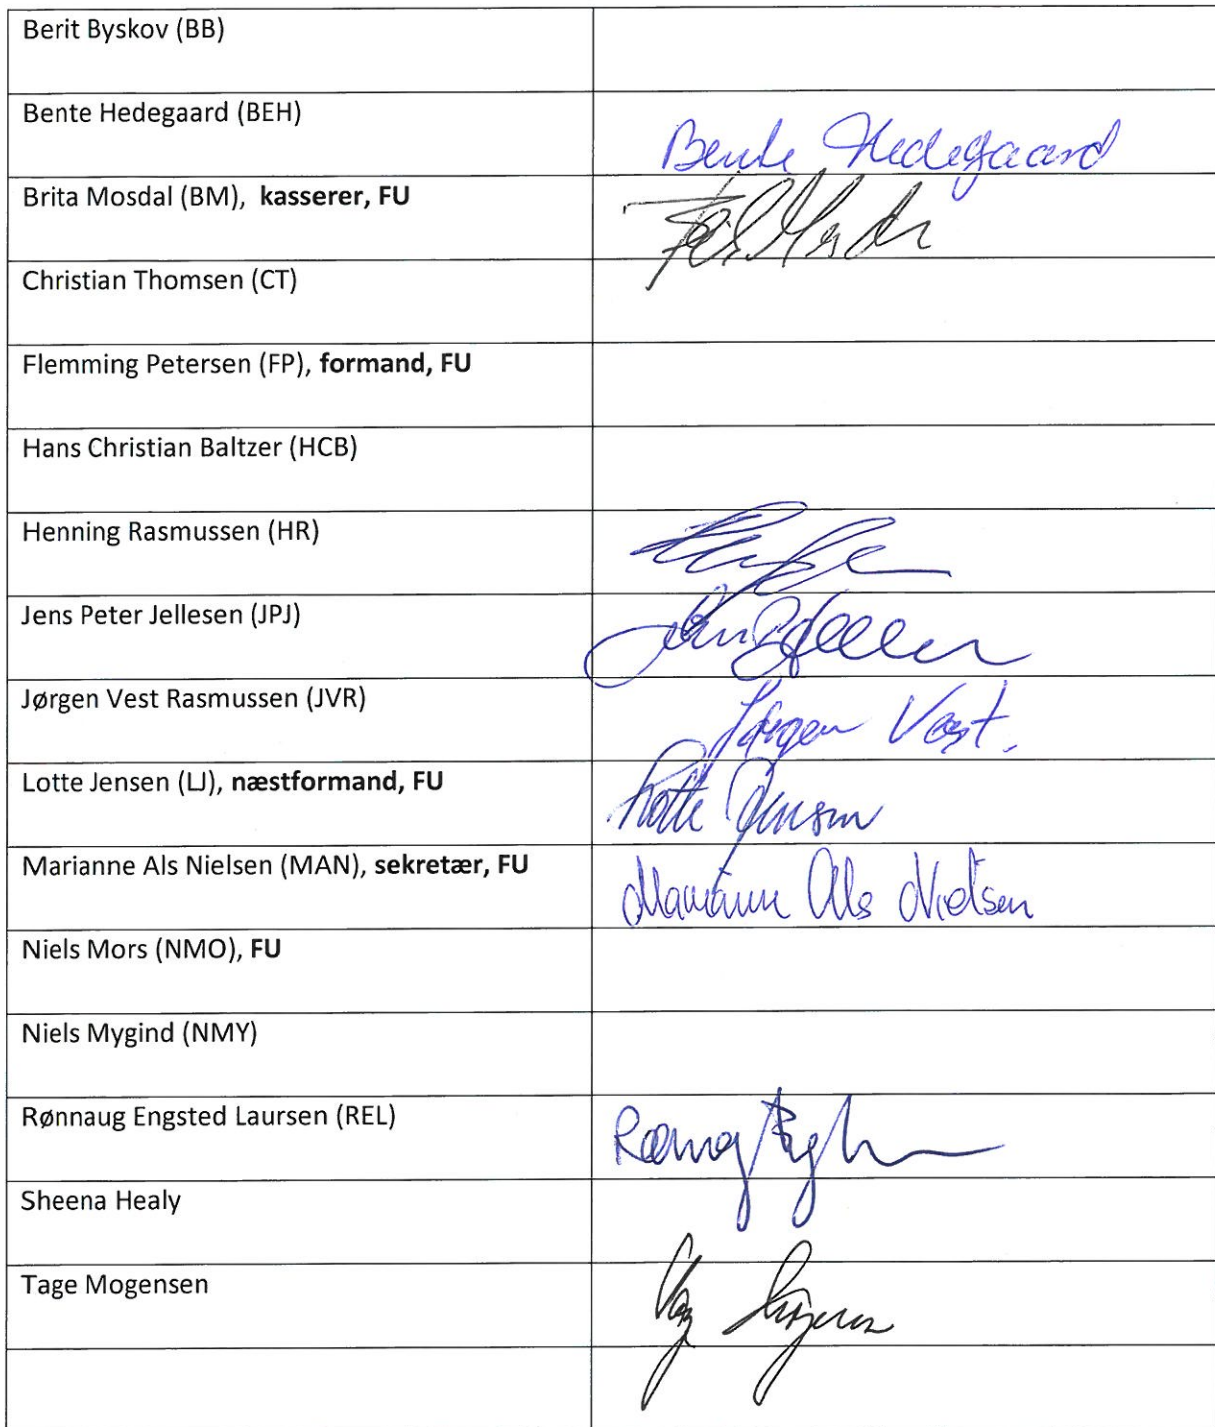 Berit Byskov (BB)
Bente Hedegaard (BEH)
Bente Hedegaard
Brita Mosdal (BM), kasserer, FU
Christian Thomsen (CT)
Flemming Petersen (FP), formand, FU
Hans Christian Baltzer (HCB)
Henning Rasmussen (HR)
Jens Peter Jellesen (JPJ)
Jørgen Vest Rasmussen (JVR)
Jørgen Vest.
Lotte Jensen (LJ), næstformand, FU
Lotte Jensen
Marianne Als Nielsen (MAN), sekretær, FU
Marianne Als Nielsen
Niels Mors (NMO), FU
Niels Mygind (NMY)
Rønnaug Engsted Laursen (REL)
Sheena Healy
Tage Mogensen